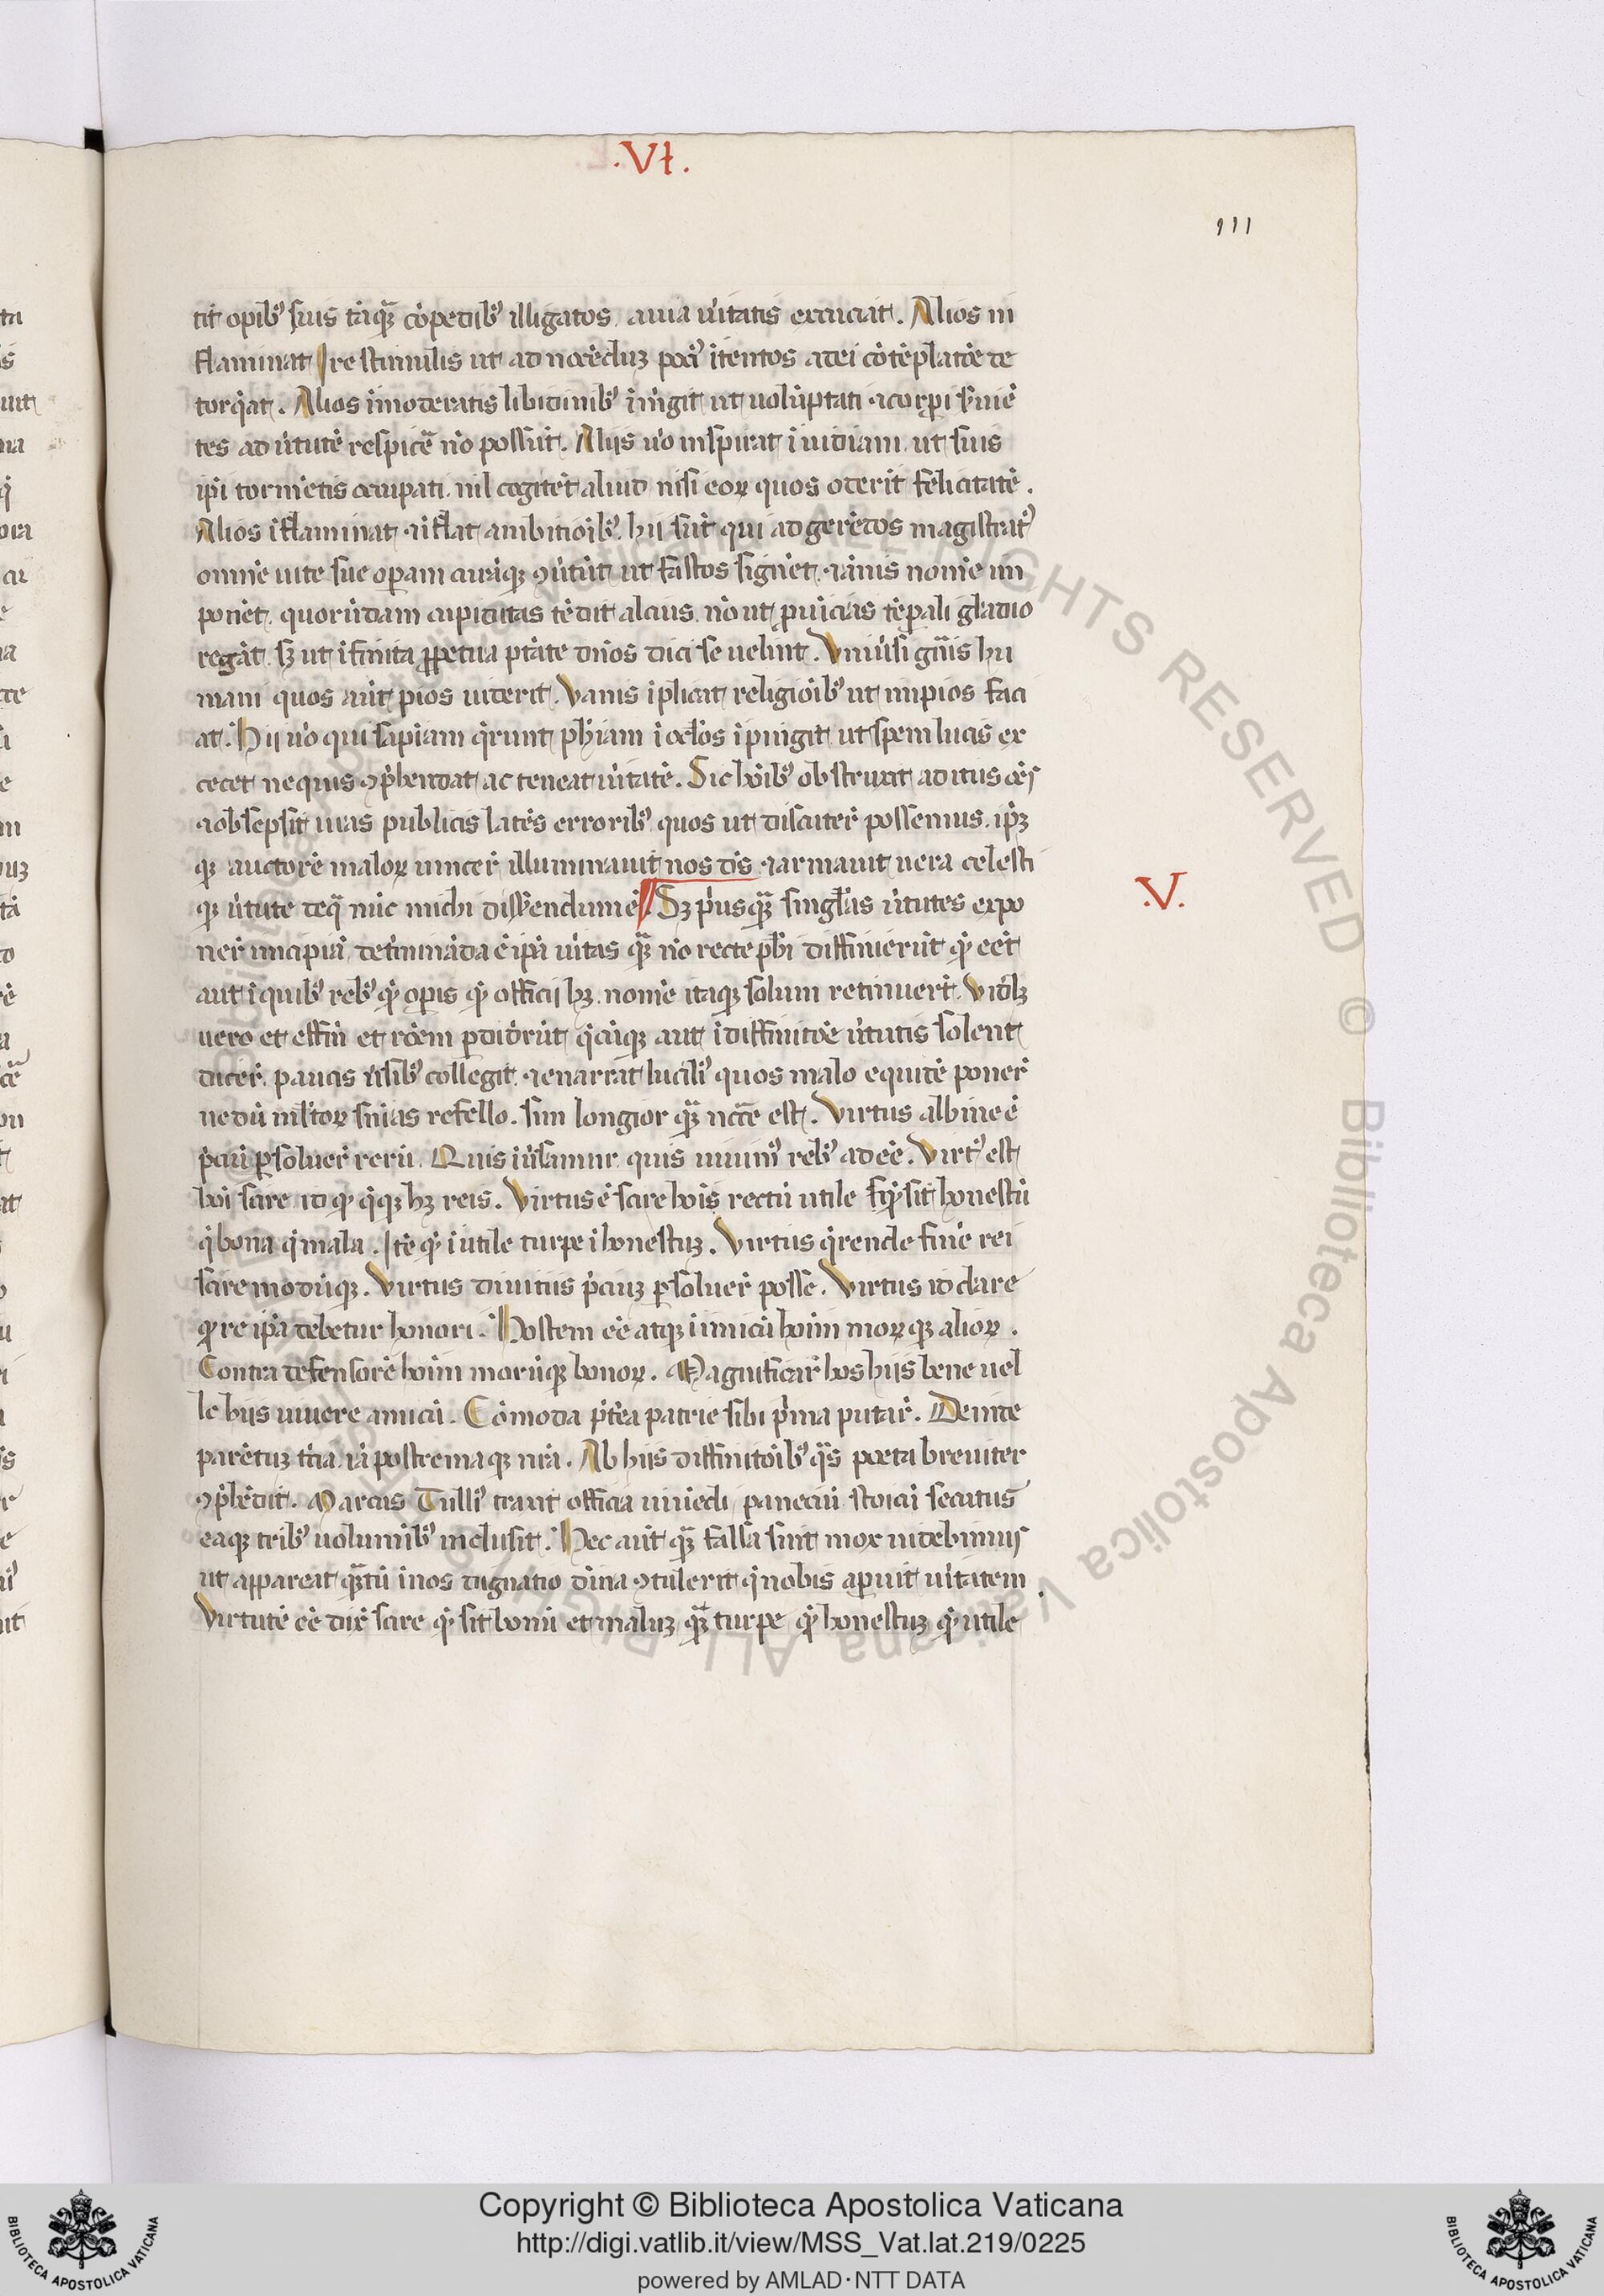 .VI.
111
tit opibꝰ suis tāqᷓ cōpedibꝰ illigatos a uia ũitatis excutiat. Alios in
flaminat Ire stimulis ut ad nocēduꝫ pociꝰ ītentos a dei cōtēplatōe de
torq̄at. Alios īmoderatis libidinibꝰ īmgit ut uolūptati ⁊ corpi
tes ad ũtutē respicē nō possūt. Aliis ũo inspirat īuidiam ut suis
ip̄i tormētis occupati nil cogitēt aliud nisi eoꝝ quos oderīt felicitatē.
Alios īflaminat ⁊ īflat ambitiōibꝰ. hii sūt qui ad gerēdos magistratꝰ
omnē uite sue opam curāqꝫ ꝯũtūt ut fastos signēt ⁊ ānis nomē im
ponēt. quorūdam cupiditas tēdit altius nō ut prouīcias tēpali gladio
regāt. sꝫ ut īfinita ꝑpetua ptāte dn̄os dici se uelint. Vniũsi gn̄is hu
mani quos aūt pios uiderit. Vanis īplicat religiōibꝰ ut impios faci
at. Hii ũo qui sapiam q̄runt phīam ī oclos īpingit ut spem lucis ex
cecet nequis ꝯp̄hendat ac teneat ũitatē. Sic hōibꝰ obstruxit aditus oēs
⁊ obsepsit uias publicis latēs erroribꝰ quos ut discuterē possemus. ip̄ꝫ
qꝫ auctorē maloꝝ uincerē illuminauit nos ds̄ ⁊ armauit uera celesti
.V.
qꝫ ũtute de q̄ nūc michi disserendum ē. Sꝫ p̄usqᷓ singlas ũtutes expo
nerē incipiā determināda ē ip̄a ũtas qᷓ nō recte phi diffinierūt qͥ eēt
aut ī quibꝰ rebꝰ qͥ opis qͥ officii hꝫ. nomē itaqꝫ solum retinuerūt
uero et effm̄ et rōem pdidērūt q̄cūqꝫ aut ī diffinitōe ũtutis solent
dicerē. paucis ũsibꝰ collegit ⁊ enarrat lucilꝰ quos malo equidē ponerē
ne dū mltoꝝ sn̄ias refello. sim longior qᷓ ncc̄e est. Virtus albine ē
p̄ciū psoluerē ũū. Quis īũsamur quis uiuimꝰ rebꝰ ad eē. Virtꝰ est
hōi scire id qͥ q̄qꝫ hꝫ reis. Virtus ē scire hōis rectū utile qͥ sit honestū
q̄ bona q̄ mala. Itē qͥ īutile turpe īhonestuꝫ. Virtus q̄rende finē rei
scire modūqꝫ. Virtus diuitiis p̄ciuꝫ psoluerē posse. Virtus id dare
qͥ re ip̄a debetur honori. Hostem eē atqꝫ īimicū hōim moꝝqꝫ alioꝝ.
Contra defensorē hōim morūqꝫ bonoꝝ. Magnificarē hos hiis bene uel
le hiis uiuere amicū. Cōmoda p̄tea patrie sibi p̄ma putarē. Deinde
parētuꝫ tc̄ia iā postremaqꝫ nr̄a. Ab hiis diffinitōibꝰ q̄s poeta breuiter
ꝯp̄hēdit. Marcus Tullꝰ traxit officia uiuēdi paneciū stoicū secutus
eaqꝫ tribꝰ uoluminibꝰ inclusit. Hec aūt qᷓ falsa sint mox uidebimus
ut appareat qᷓtū ī nos dignatio diīna ꝯtulerit q̄ nobis aperuit ũitatem
Virtutē eē dixē scire qͥ sit bonū et maluꝫ qͥ turpe qͥ honestuꝫ qͥ utile
Copyright © Biblioteca Apostolica Vaticana
http://digi.vatlib.it/view/MSS_Vat.lat.219/0225
powered by AMLAD·NTT DATA